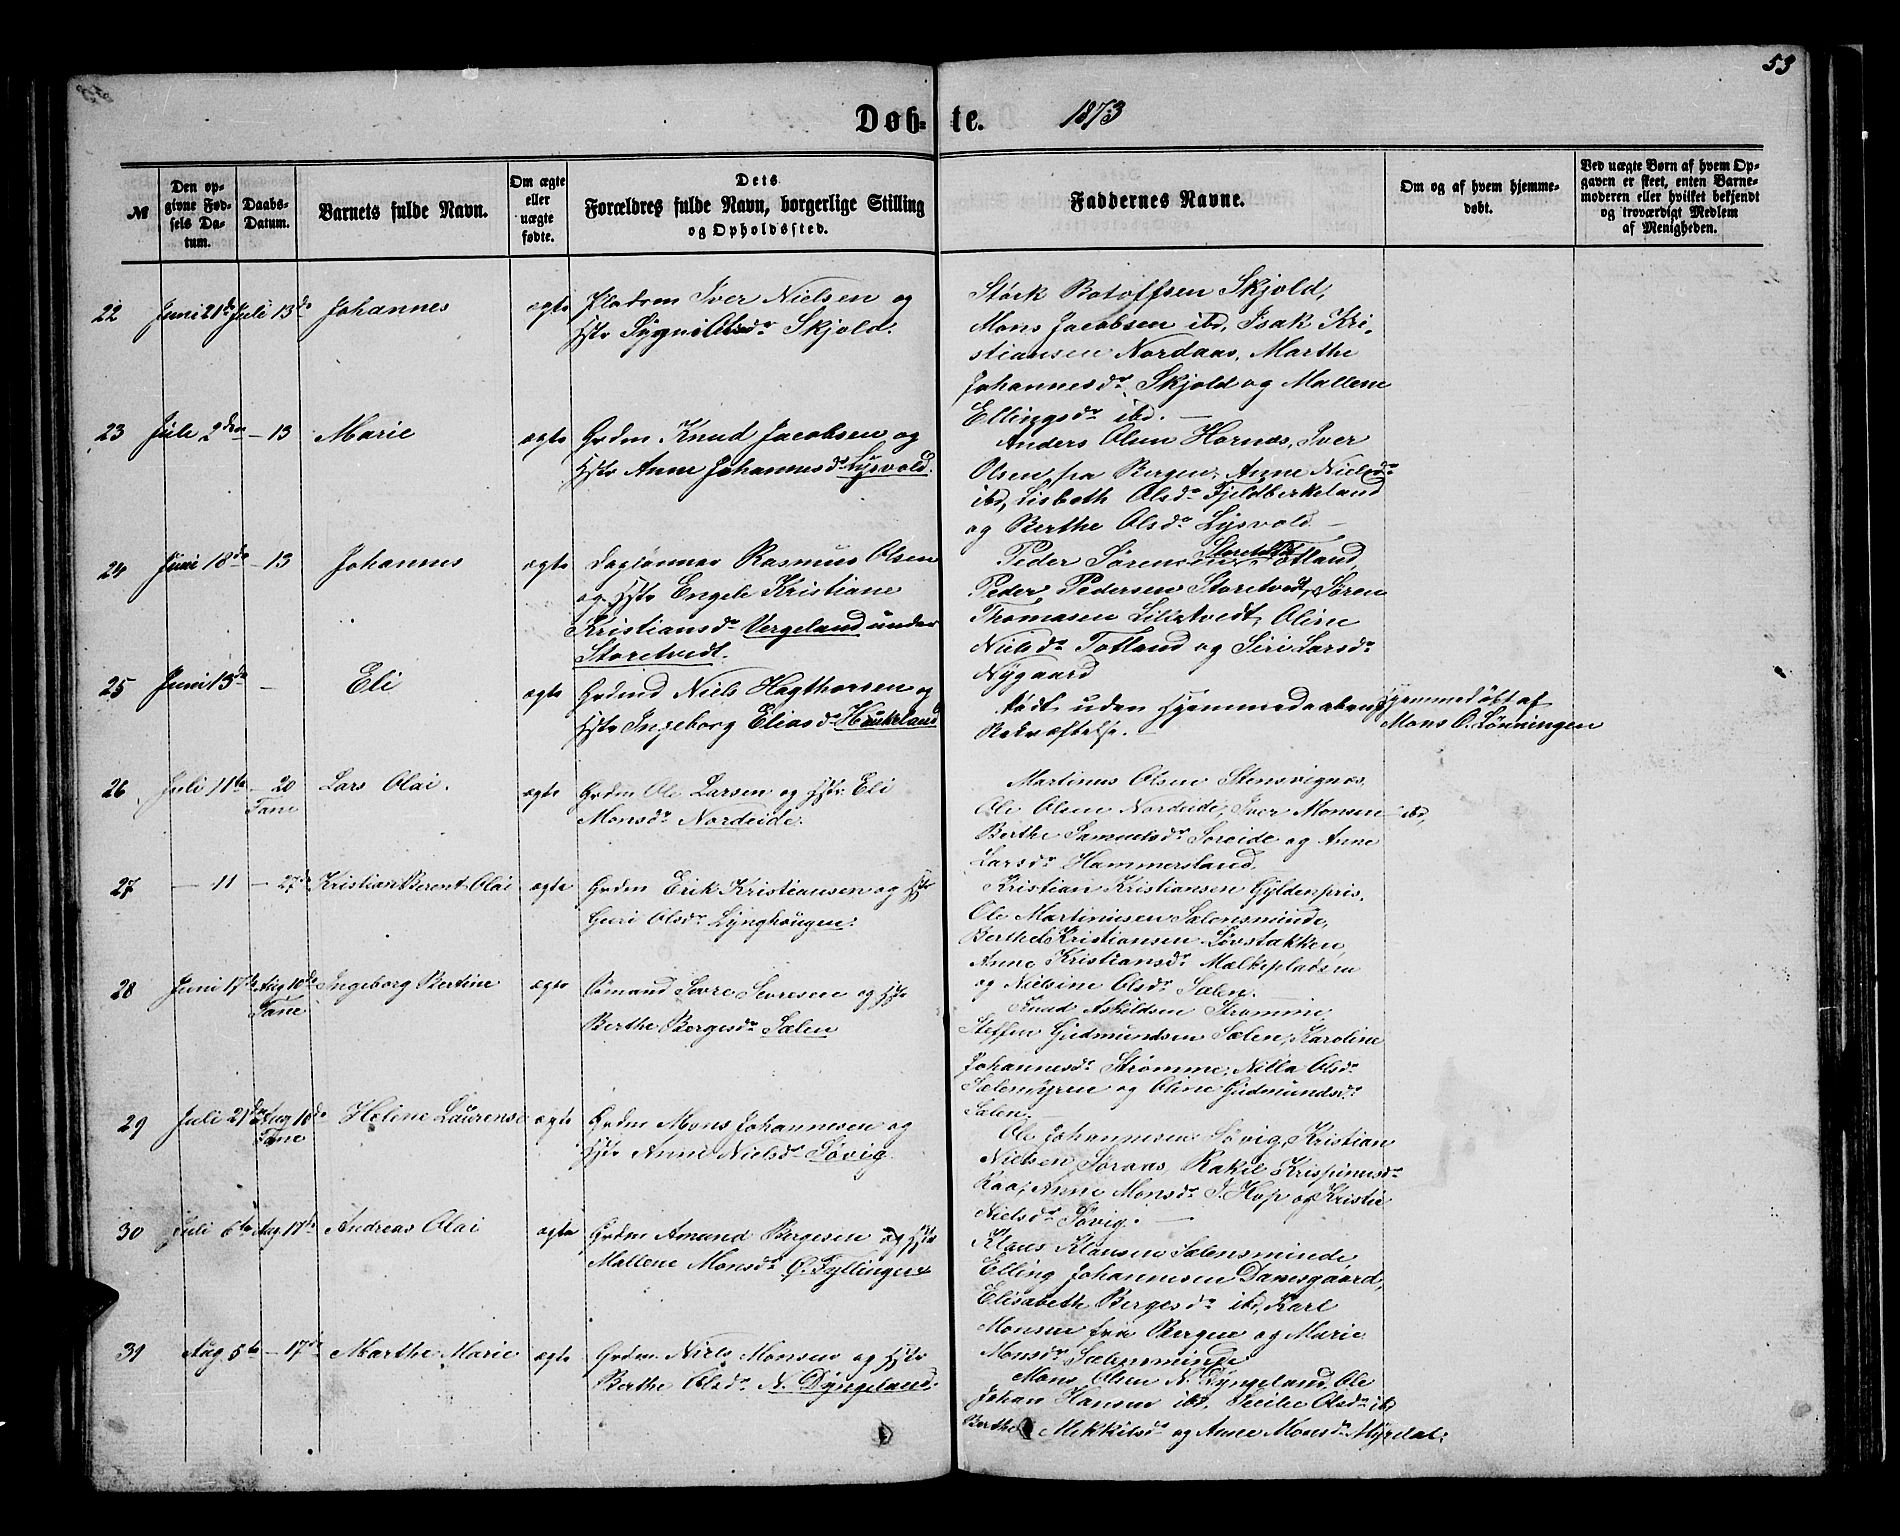 53
Døb- te. 1873
№
Den op-
givne Fød-
sels Da-
tum.
Daabs-
Datum.
Barnets fulde Navn.
Om ægte
eller
uægte
fødte.
Dets
Forældres fulde Navn, borgerlige Stilling
og Opholdssted.
Faddernes Navne.
Om og af hvem hjemme-
døbt.
Ved uægte Børn af hvem Op-
gaven er skeet, enten Barne-
moderen eller hvilket bekjendt
og troværdigt Medlem
af Menigheden.
22 Juni 21de Juli 13de Johannes ægte Pladsm Iver Nielsen og
Hstr Olsdr Skjold.
Størk Botolfsen Skjold,
Mons Jacobsen ibd, Isak Kri-
stiansen Nordaas, Marthe
Johannesdr Skjold og Mallene
Ellingsdr ibd.
23 Juli 2den – 13 Marie ægte Grdm Knud Jacobsen og
Hstr Anne Johannesdr Lysvold.
Anders Olsen Hornæs, Iver
Olsen fra Bergen, Anne Nielsdr
ibd, Lisbeth Olsdr Fjeldberkeland
og Berthe Olsdr Lysvold
24 Juni 18de – 13 Johannes ægte Daglønner Rasmus Olsen
og Hstr Engele Kristiane
Kristiansdr Vergeland under
Storetvedt.
Peder Sørensen Storetvedt Totland,
Peder Pedersen Storetvedt, Søren
Thomasen Liletvedt, Oline
Nielsdr Totland og Siri Larsdr
Nygaard
25 Juni 13de – Eli ægte Grdmd Niels Hagthorsen og
Hstr Ingeborg Eliasdr Haukeland
Død uden Hjemmedaabens
Bekræftelse.
Hjemmedøbt af
Mons O. Lønningen
26 Juli 11te – 20 Lars Olai. ægte Grdm Ole Larsen og Hstr Eli
Fane
Monsdr Nordeide.
Martinus Olsen Stensvignæs,
Ole Olsen Nordeide, Iver Monsen ibd,
Berthe Samuelsdr Søreide og Anne
Larsdr Hammersland.
27 – 11 – 27de Kristian Berent Olai ægte Grdm Erik Kristiansen og Hstr
Guri Olsdr Lynghougen.
Kristian Kristiansen Gyldenpris,
Ole Martinusen Sælensminde,
Berthel Kristiansen Løvstakken,
Anne Kristiansdr Melkepladsen
og Nielsine Olsdr Sælen.
28 Juni 17de Aug 10de Ingeborg Bertine ægte Sjure Sjuresen og Hstr
Fane
Berthe Bergesdr Sælen
Knud Askildsen Strømme,
Steffen Gudmundsen Sælen, Karoline
Johannesdr Strømme, Nilla Olsdr
Sælemyren og Oline Gudmundsdr
Sælen.
29 Juli 21de Aug 10de Heline Laurense ægte Grdm Mons Johannesen og
Fane
Hstr Anne Nielsdr Søvig
Ole Johannesen Søvig, Kristian
Nielsen Søraas, Rakil Krispinusdr
Raa, Anne Monsdr I. Hop og Kristi
Nielsdr Søvig.
30 Juli 6te Aug 17de Andreas Olai ægte Grdm Amund Bergesen og Hstr
Mallene Monsdr Ø. Fyllingen
Klaus Klausen Sælensminde,
Elling Johannesen Damsgaard,
Elisabeth Bergesdr ibd, Karl
Monsen fra Bergen og Marie
Monsdr Sælensminde
31 Aug 5te – 17de Marthe Marie ægte Grdm. Niels Monsen og Hstr
Berthe Olsdr N. Dyngeland.
Mons Olsen N. Dyngeland, Ole
Johan Hansen ibd, Sicilie Olsdr ibd
Berthe Mikkelsdr og Anne Monsdr Myrdal.